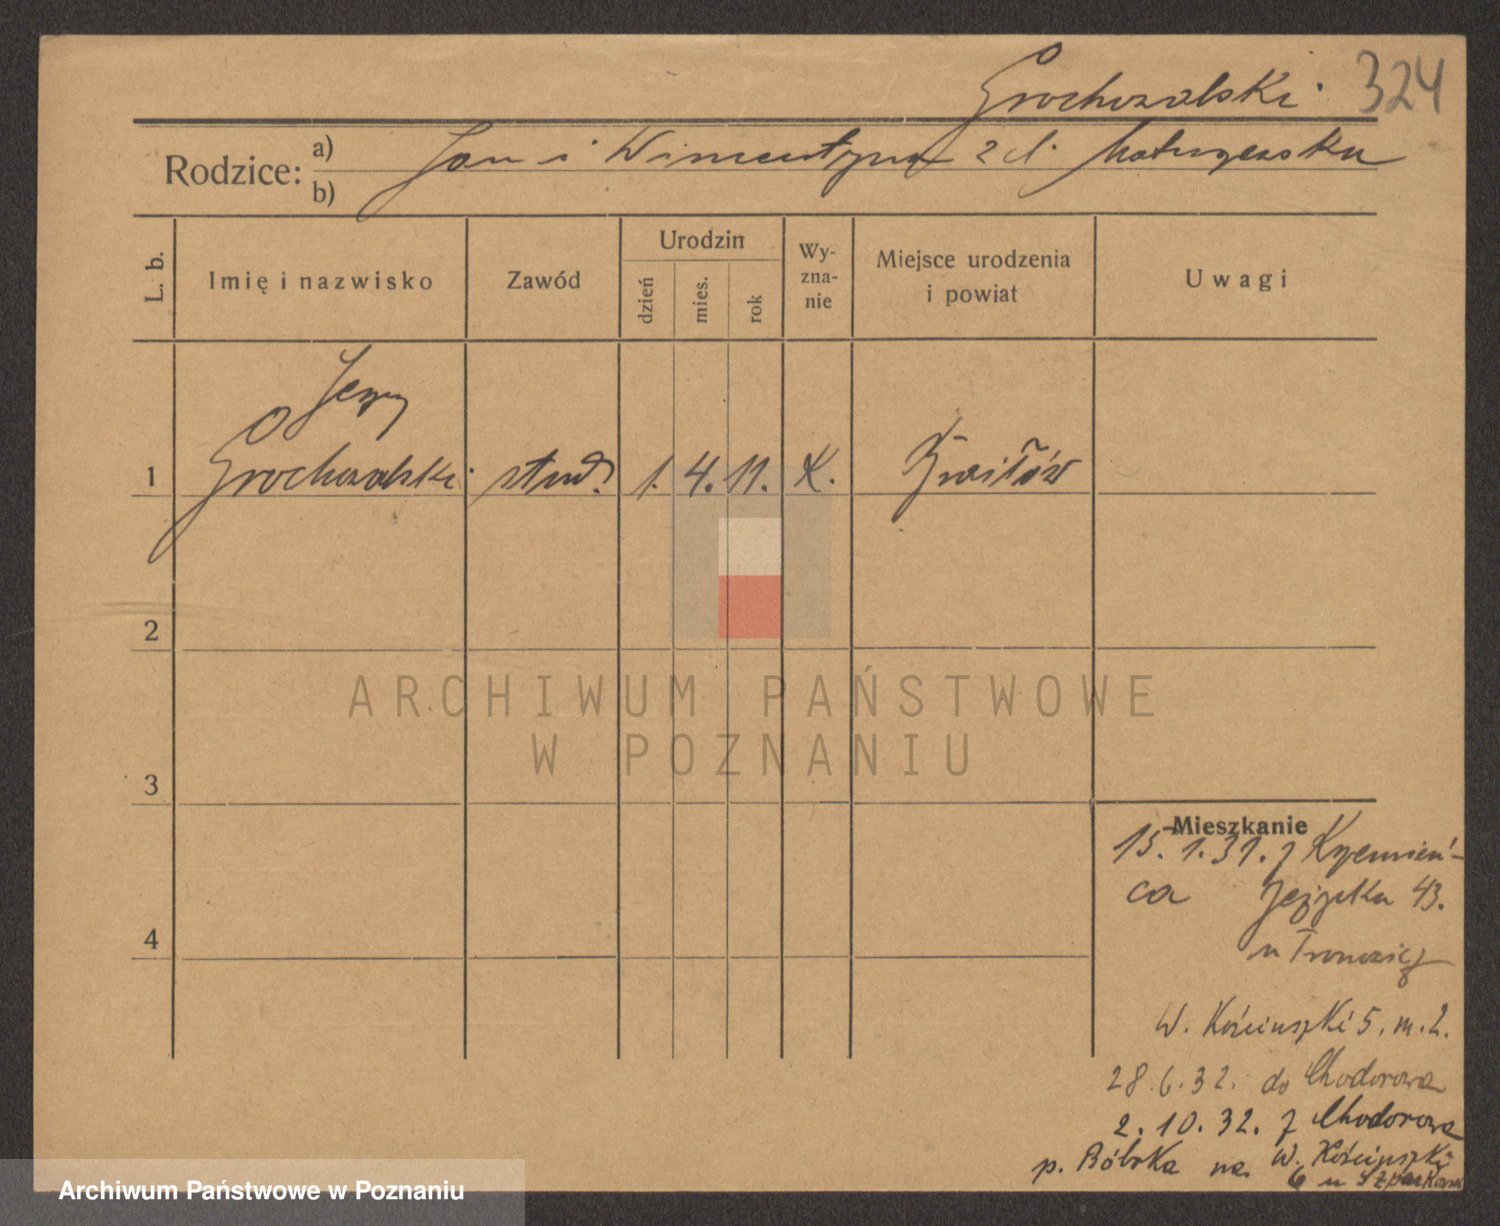 Grochowalski 324
Rodzice: a) Jan i Wincentyna z d.
b)
L. b. Imię i nazwisko Zawód Urodzin dzień mies. rok Wyznanie Miejsce urodzenia i powiat Uwagi
Jerzy
1 Grochowalski stud. 1. 4. 11. K.
2
3
4
ARCHIWUM PAŃSTWOWE
W POZNANIU
Mieszkanie
15.1.31. z Krzemień-
ca 43.
u
W. Kościuszki 5, m. 2.
28.6.32. do Chodorowa
2.10.32. z Chodorowa
p. Bóbrka na W. Kościuszki
6 u
Archiwum Państwowe w Poznaniu